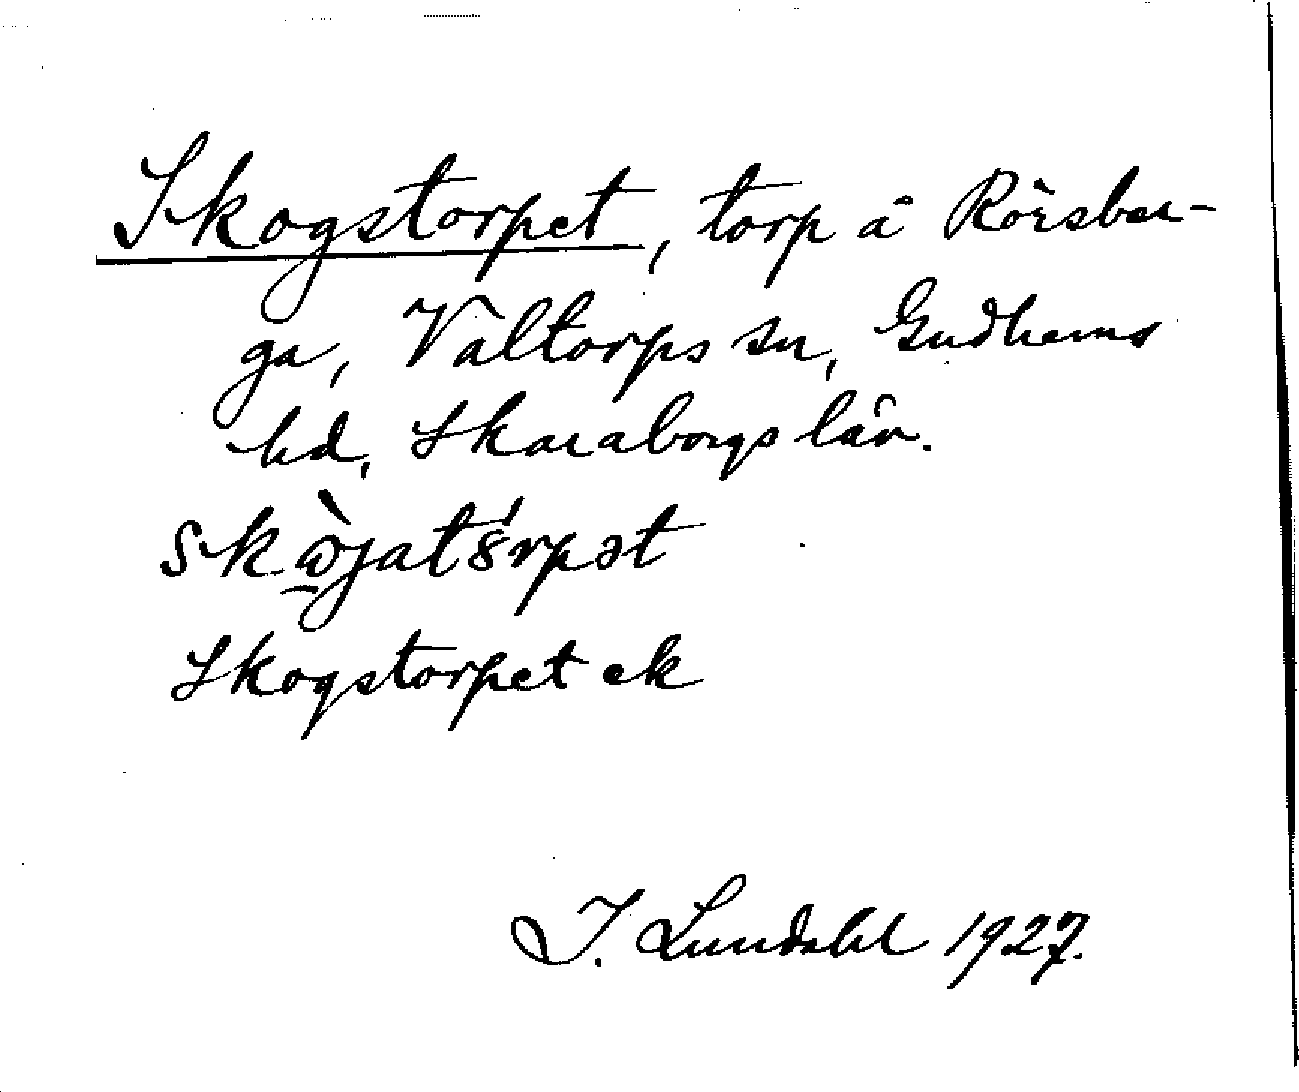 Skogstorpet, torp å Rörsber-
ga, Valtorps sn, Gudhems
hd, Skaraborgs län.
skɷ̀jatȣ́rpət
Skogstorpet ek
I. Lundahl 1927.